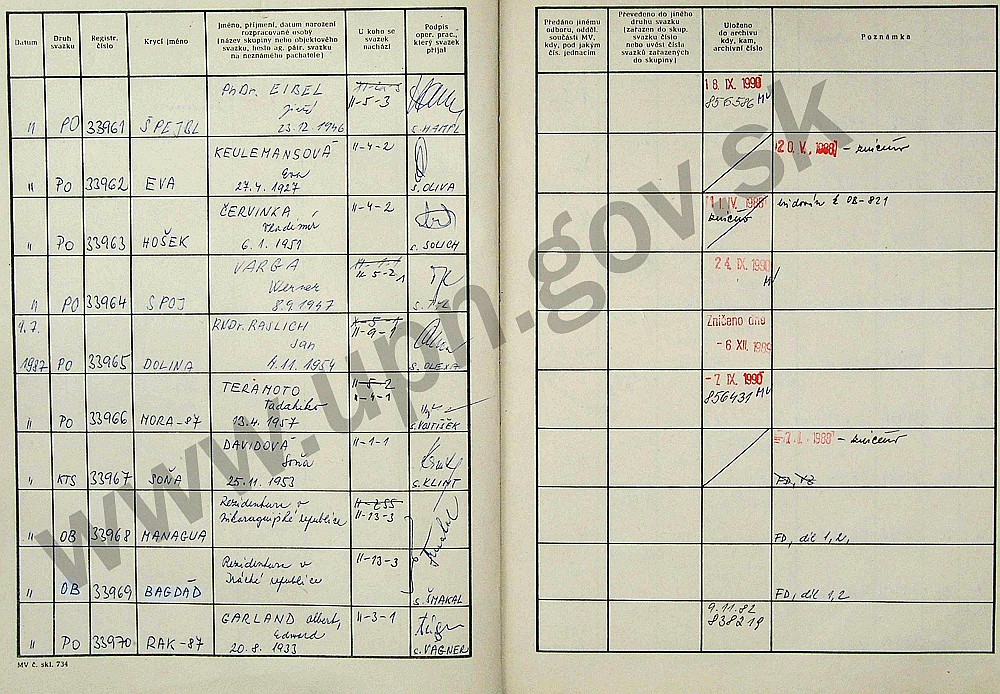 Datum
Druh svazku
Registr. číslo
Krycí jméno
Jméno, příjmení, datum narození
rozpracované osoby
(název skupiny nebo objektového
svazku, heslo ag. pátr. svazku
na neznámého pachatele)
U koho se
svazek
nachází
Podpis
oper. prac.,
který svazek
přijal
Předáno jinému
odboru, odděl.
součásti MV,
kdy, pod jakým
čís. jednacím
Převedeno do jiného
druhu svazku
(zařazen do skup.
svazku číslo
nebo uvést čísla
svazků zařazených
do skupiny)
Uloženo
do archivu
kdy, kam,
archivní číslo
Poznámka
PhDr. EIBEL
II-5-3
18. IX. 1990
Jiří
856586 MV
" PO 33961 ŠPEJBL 23.12.1946 s. HAMPL
KEULEMANSOVÁ II-4-2
20. V. 1988 - zničeno
Eva
" PO 33962 EVA 27.4.1927 s. OLIVA
ČERVINKA II-4-2
11. IV. 1988 OB-821
Vladimír
zničeno
" PO 33963 HOŠEK 6.1.1951 s. SOLICH
VARGA
II-5-2
24. IX. 1990
Werner
MV
" PO 33964 SPOJ 8.9.1947
1.7. RNDr. RAJLICH
II-9-1
Zničeno dne
Jan
- 6 XII. 1989
1987 PO 33965 DOLINA 4.11.1954 s. OLEXA
TERAMOTO II-5-2
- 7. IX. 1990
Tadahiko II-4-1
856431 MV
" PO 33966 MORA-87 13.4.1957 s. VOJTÍŠEK
DAVIDOVÁ II-1-1
1988 - zničeno
Soňa
" KTS 33967 SOŇA 25.11.1953 s. KLIMT
Rezidentura v II-255
Nikaragujské republice II-13-3
" OB 33968 MANAGUA FD, díl 1,2,
Rezidentura v II-13-3
Irácké republice
" OB 33969 BAGDÁD s. ŠMAKAL FD, díl 1,2
GARLAND Albert, II-3-1
9.11.82
Edward
838219
" PO 33970 RAK-87 20.8.1933 s. VAGNER
MV č. skl. 734
www.upn.gov.sk